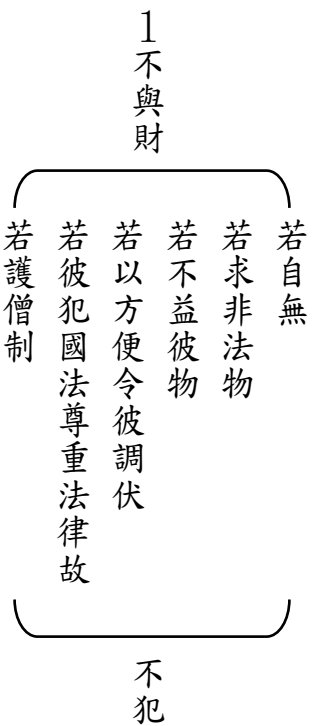 1不與財
若自無
若求非法物
若不益彼物
若以方便令彼調伏
若彼犯國法尊重法律故
若護僧制
不犯